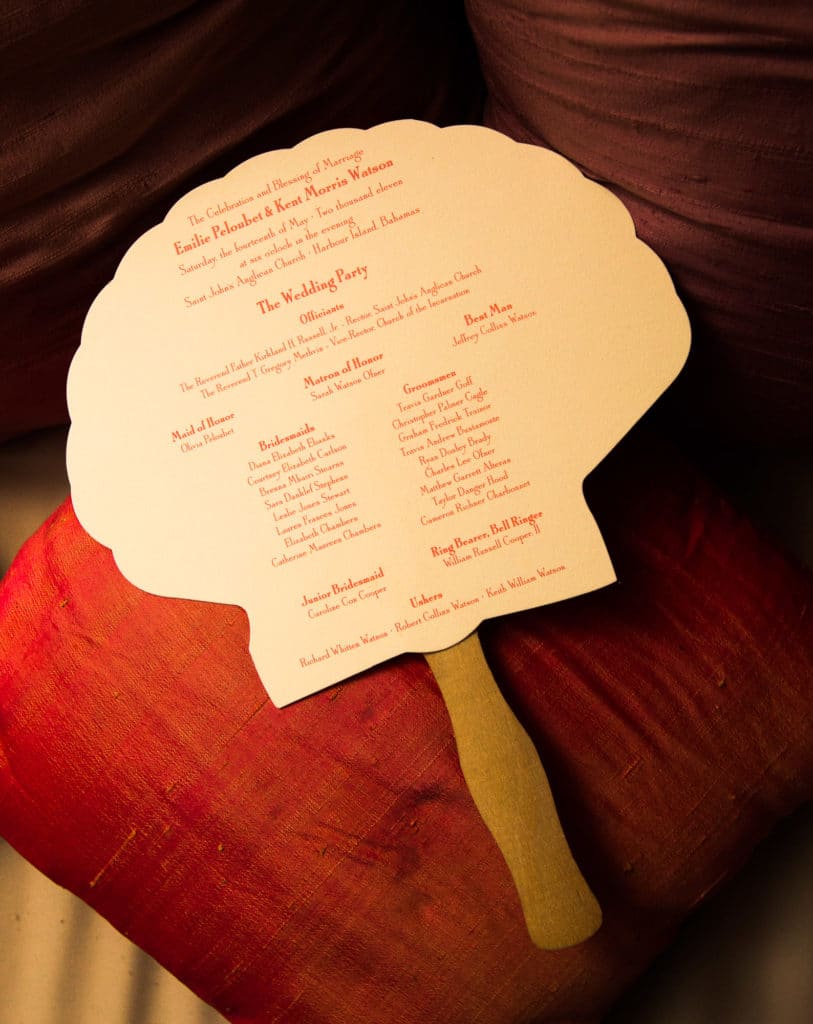 The Celebration and Blessing of Marriage
Emilie Peloubet & Kent Morris Watson
Saturday the fourteenth of May · Two thousand eleven
at six o'clock in the evening
Saint John's Anglican Church · Harbour Island, Bahamas
The Wedding Party
Officiants
The Reverend Father Kirkland H. Russell, Jr. · Rector, Saint John's Anglican Church
The Reverend T. Gregory Methvin · Vice-Rector Church of the Incarnation
Maid of Honor
Olivia Peloubet
Matron of Honor
Sarah Watson Ofner
Best Man
Jeffrey Collins Watson
Bridesmaids
Diana Elizabeth
Courtney Elizabeth Carlson
Brenna Mhairi Stearns
Sara Stephens
Leslie Jones Stewart
Lauren Frances Jones
Elizabeth Chambers
Catherine Maureen Chambers
Groomsmen
Travis Gardner Goff
Christopher Palmer Cagle
Graham Fredrick Trainor
Travis Andrew Bustamante
Ryan Dooley Brady
Charles Lee Ofner
Matthew Garrett Alteras
Taylor Danger Hood
Cameron Richner Charbonnet
Junior Bridesmaid
Caroline Cox Cooper
Ring Bearer, Bell Ringer
William Russell Cooper II
Ushers
Richard Whitten Watson · Robert Collins Watson · Keith William Watson